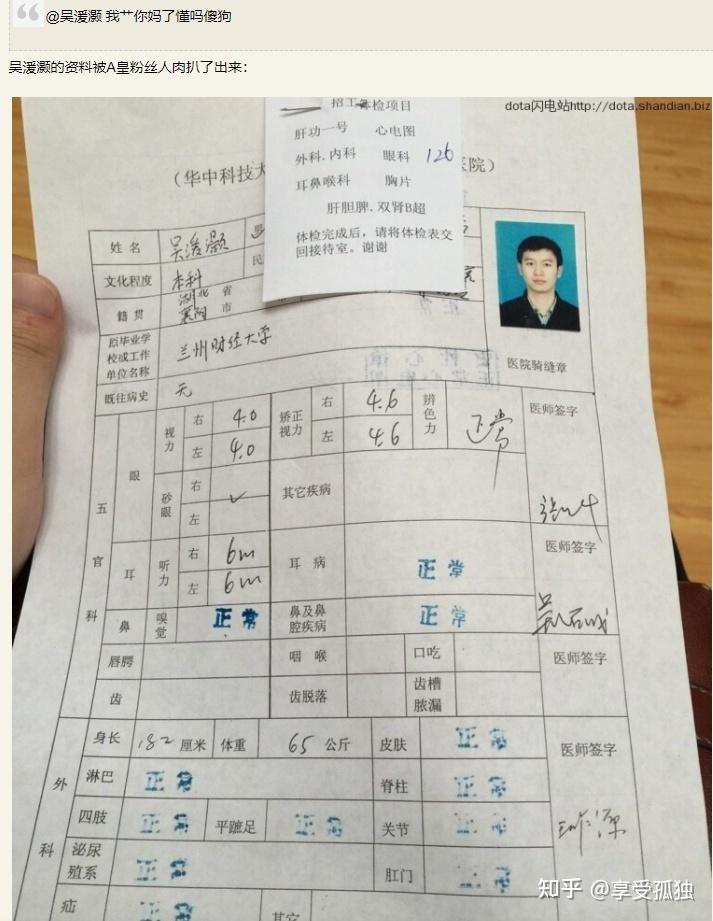 @吴湲灏 我艹你妈了懂吗傻狗
吴湲灏的资料被A皇粉丝人肉扒了出来：
dota闪电站http://dota.shandian.biz
招工体检项目
肝功一号 心电图
外科.内科 眼科 126
耳鼻喉科 胸片
肝胆脾.双肾B超
体检完成后，请将体检表交
回接待室。谢谢
（华中科技大 医院）
姓名 吴湲灏
文化程度 本科 民
籍贯 湖北 省 襄阳 市
原毕业学
校或工作
单位名称
兰州财经大学
医院骑缝章
既往病史 无
五官科
眼 视力 右 4.0 左 4.0 矫正视力 右 4.6 左 4.6 辨色力 正常 医师签字
砂眼 右 左 其它疾病
耳 听力 右 6m 左 6m 耳病 正常 医师签字
鼻 嗅觉 正常 鼻及鼻腔疾病 正常
唇腭 咽喉 口吃 医师签字
齿 齿脱落 齿槽脓漏
外科
身长 182 厘米 体重 65 公斤 皮肤 正常 医师签字
淋巴 正常 脊柱 正常
四肢 正常 平蹠足 正常 关节 正常
泌尿
殖系 正常 肛门 正常
疝 正常 其它
知乎 @享受孤独